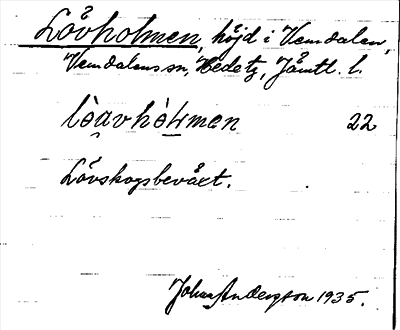 Lövholmen, höjd i Vemdalen,
Vemdalens sn, Hede tg, Jämtl. l.
lèavhò4men 22
Lövskogsbeväxt.
Johan Andersson 1935.